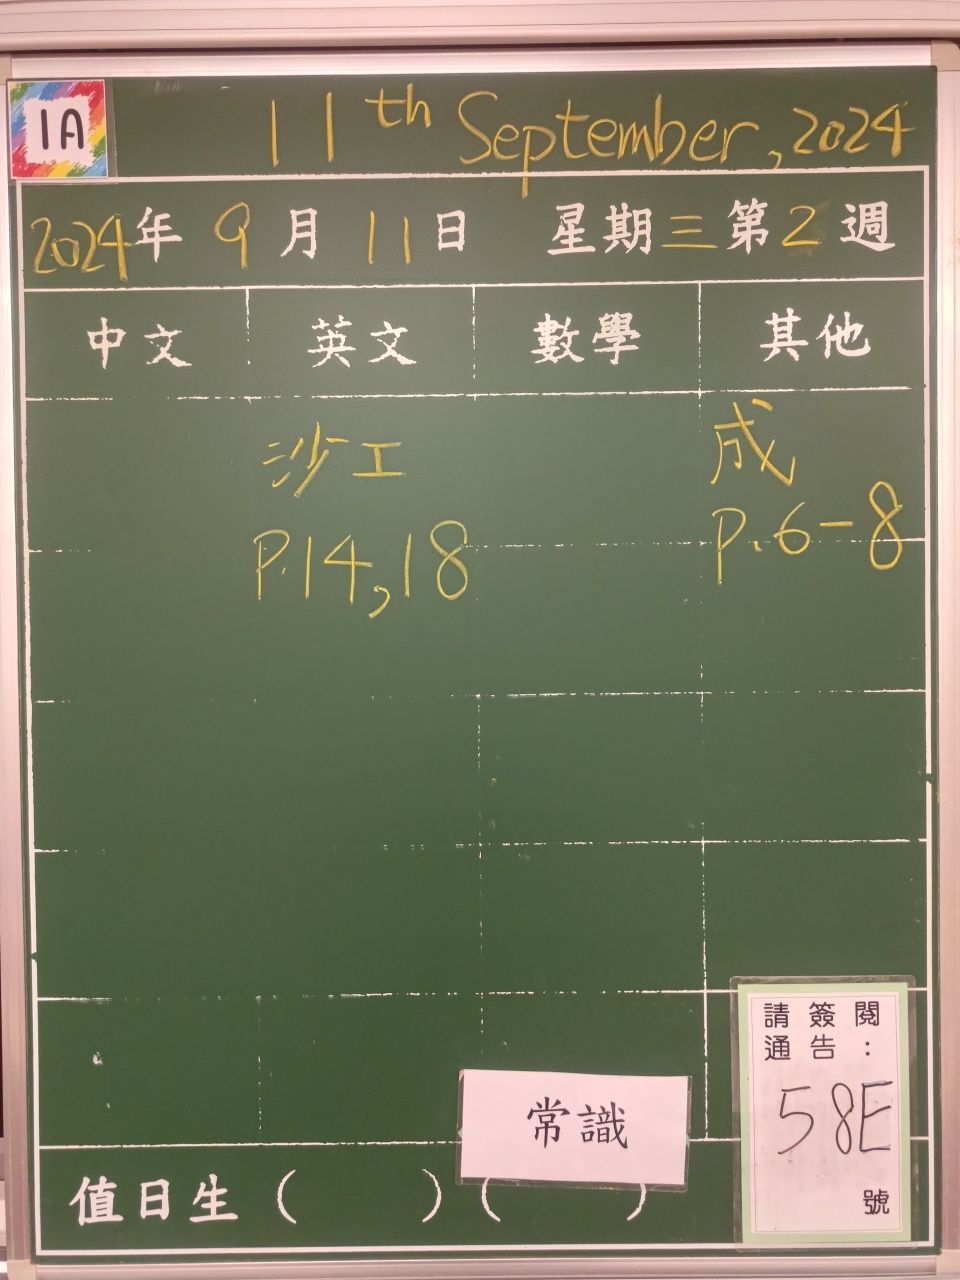 1A
11th September, 2024
2024年 9月 11日 星期三第2週
中文 英文 數學 其他
沙工 成
P.14,18 P.6-8
常識
請簽閱
通告:
58E
號
值日生 ( ) ( )